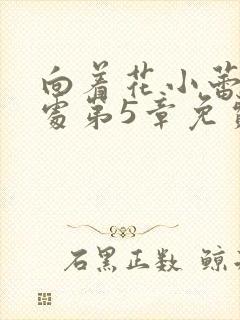 向着花小蕾
处第5章免
石黑正数 鲸